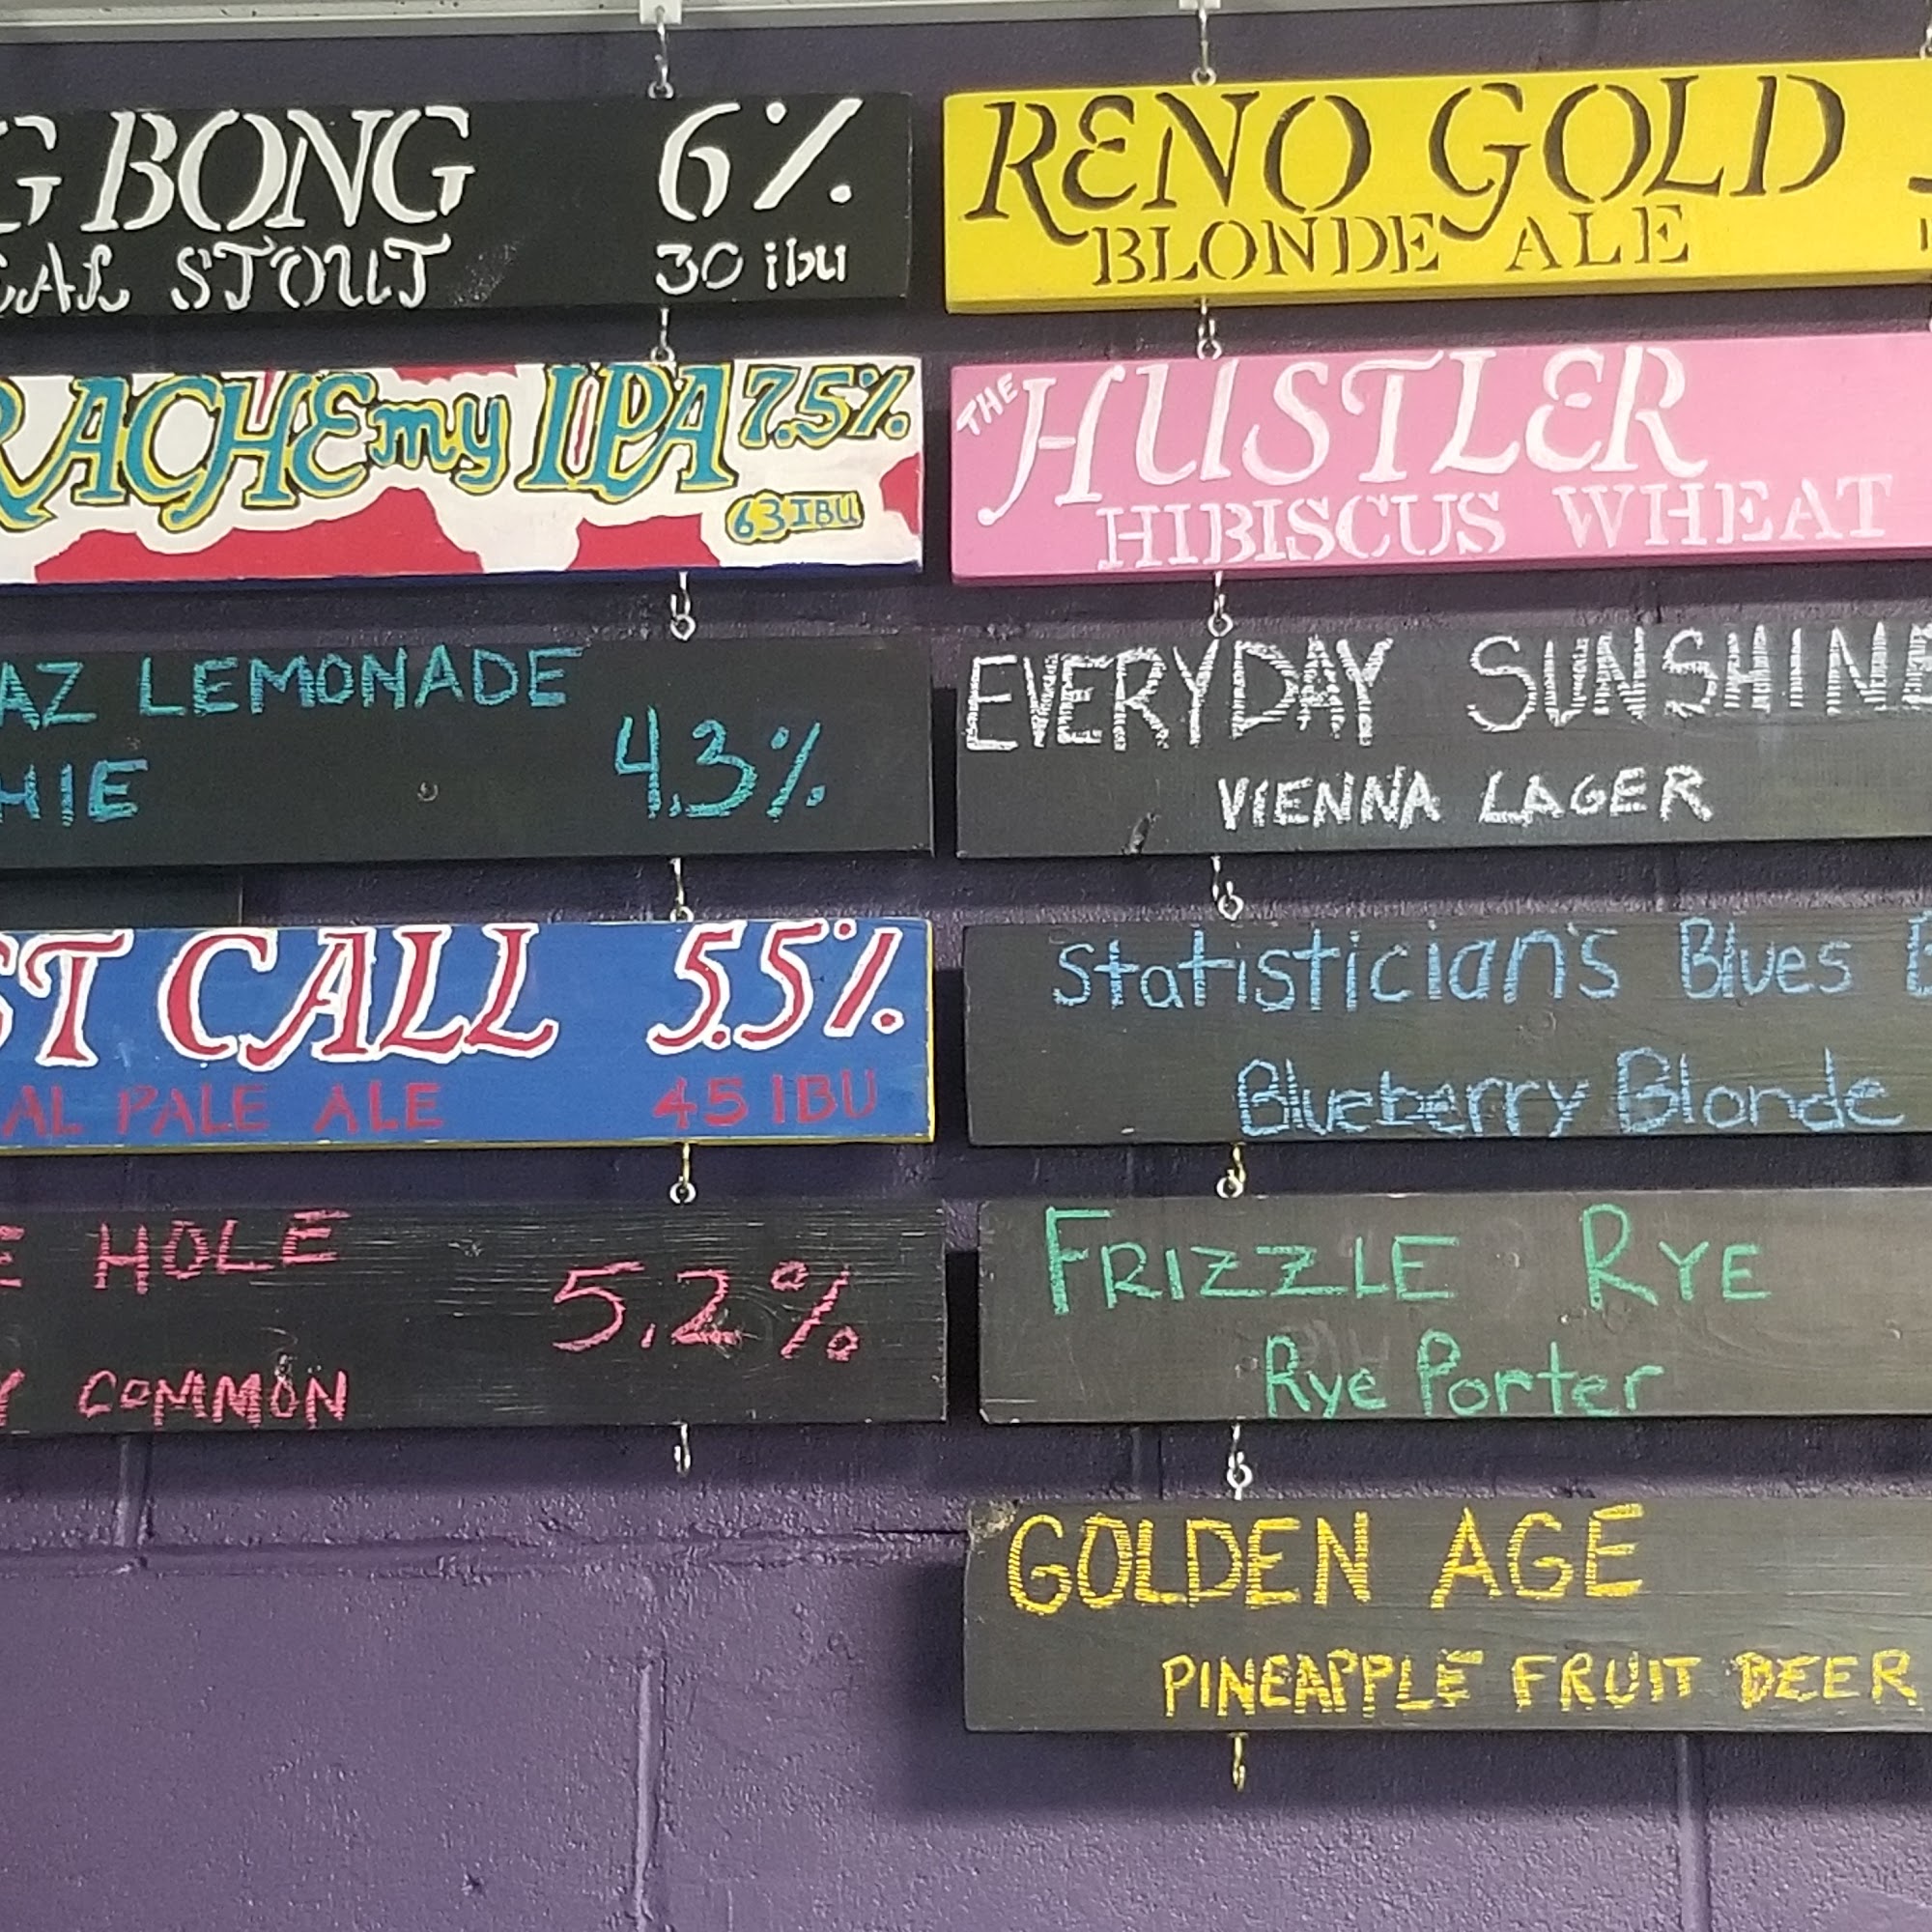 G BONG 6%
EAL STOUT 30 ibu
RACHE my IPA 7.5%
63 IBU
AZ LEMONADE
HIE 4.3%
ST CALL 5.5%
AL PALE ALE 45 IBU
E HOLE
5.2%
Y COMMON
RENO GOLD
BLONDE ALE
THE HUSTLER
HIBISCUS WHEAT
EVERYDAY SUNSHINE
VIENNA LAGER
Statistician's Blues
Blueberry Blonde
FRIZZLE RYE
Rye Porter
GOLDEN AGE
PINEAPPLE FRUIT BEER